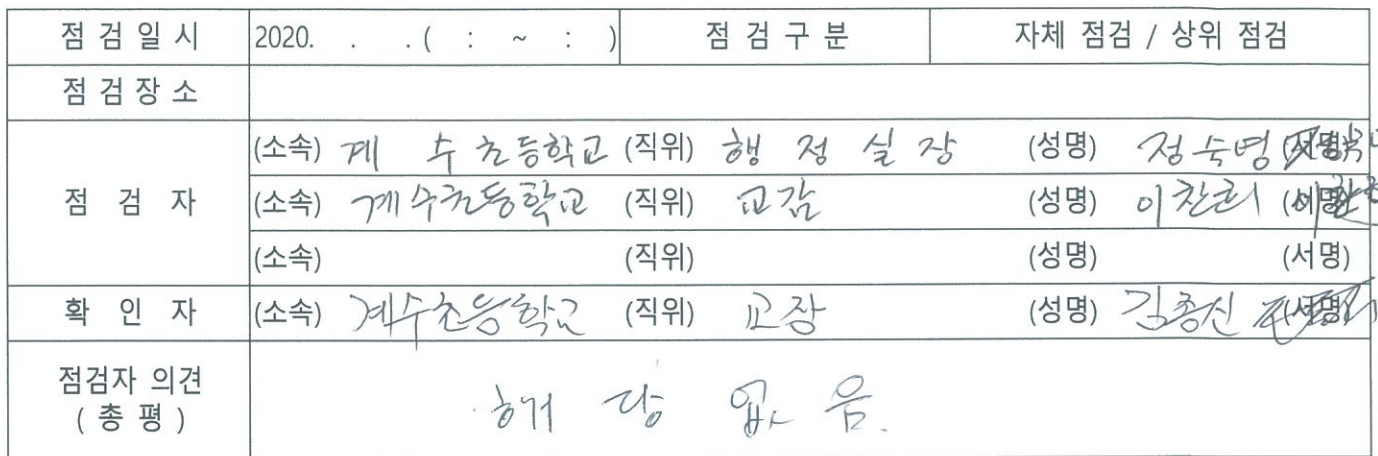 점 검 일 시 2020. . . ( : ~ : ) 점 검 구 분 자체 점검 / 상위 점검
점 검 장 소
(소속) 계 수 초등학교 (직위) 행 정 실 장 (성명) 정숙영 (서명)
점 검 자 (소속) 계수초등학교 (직위) 교감 (성명) 이찬희 (서명)
(소속) (직위) (성명) (서명)
확 인 자 (소속) 계수초등학교 (직위) 교장 (성명) 김종신 (서명)
점검자 의견
( 총 평 )
해 당 없 음.